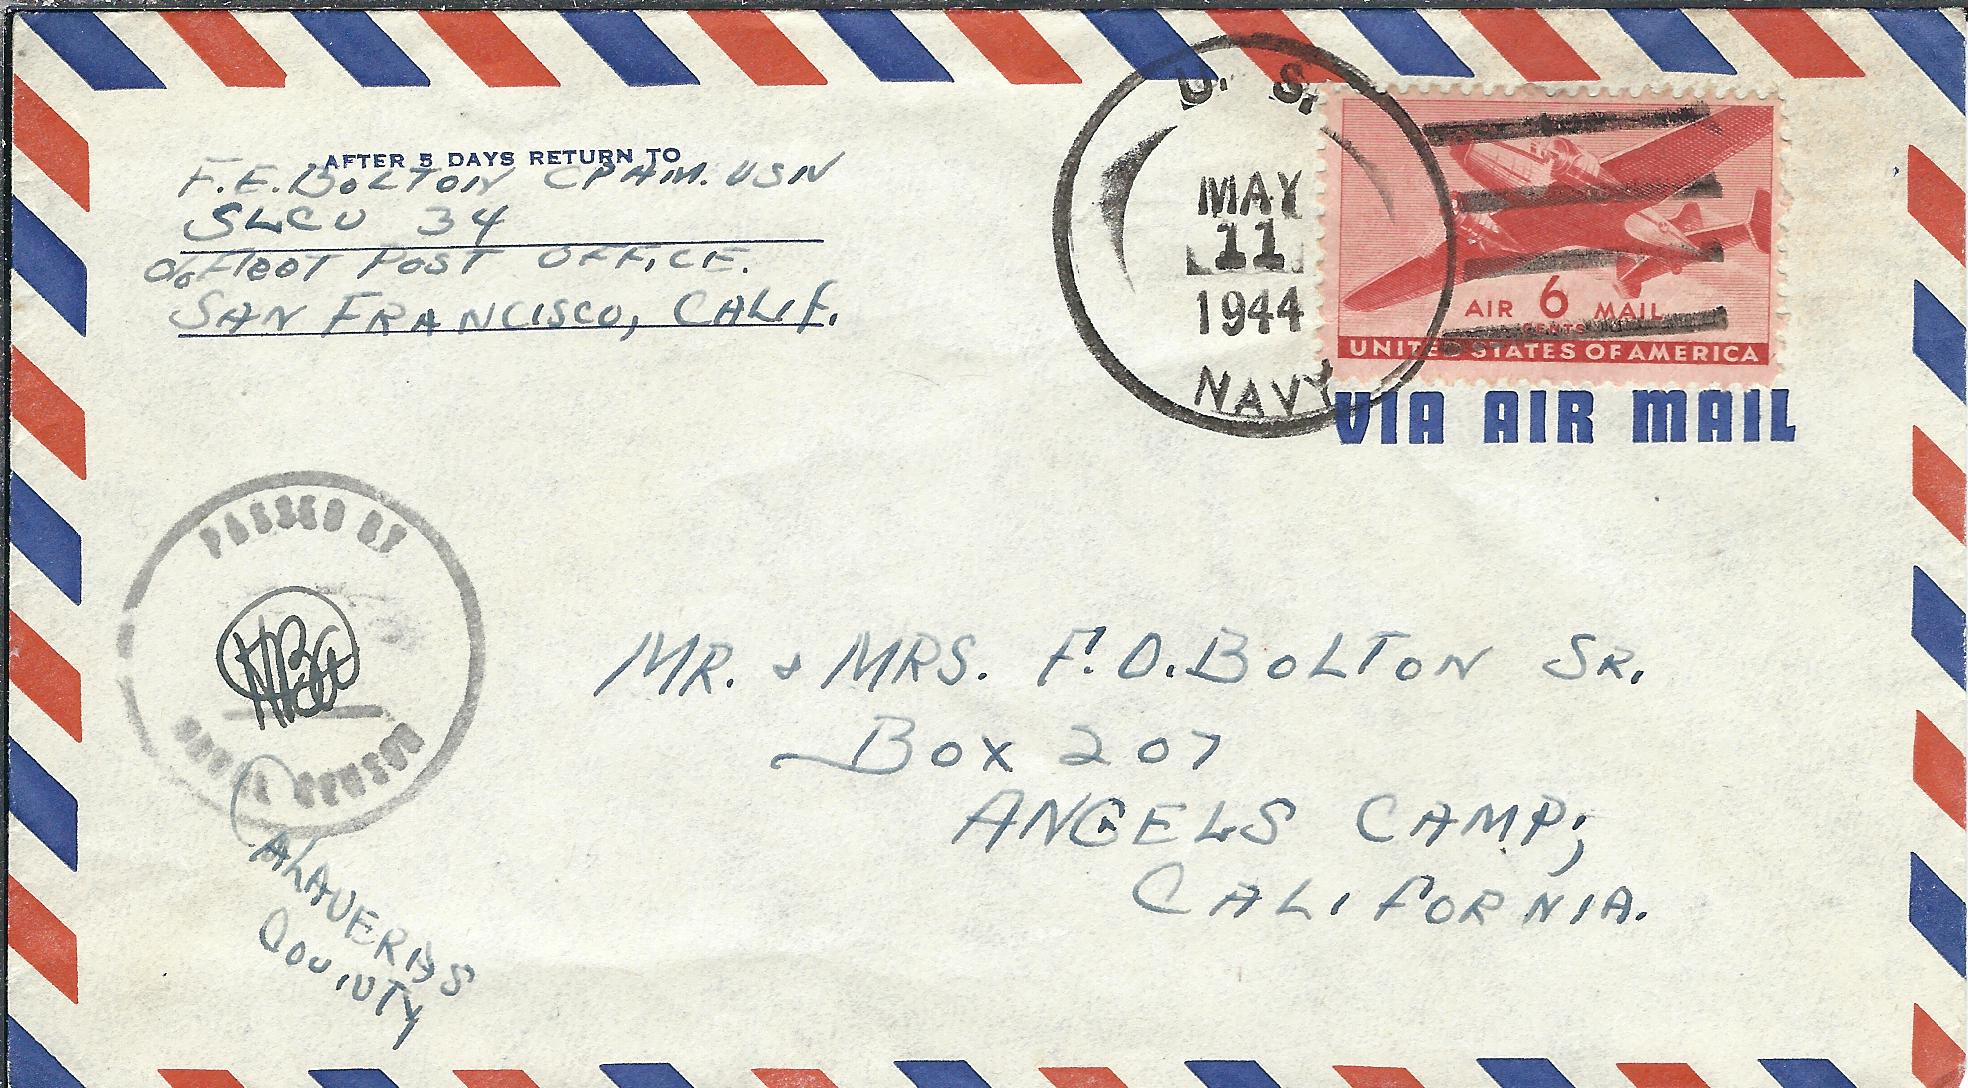 AFTER 5 DAYS RETURN TO
F.E. BOLTON CPHM. USN
SLCU 34
c/o Fleet POST OFFICE.
SAN FRANCISCO, CALIF.
U. S.
MAY
11
1944
NAVY
AIR 6 MAIL
CENTS
UNITED STATES OF AMERICA
VIA AIR MAIL
PASSED BY
NAVAL CENSOR
MR. & MRS. F.D. BOLTON SR.
BOX 207
ANGELS CAMP,
CALIFORNIA.
CALAVERAS
COUNTY